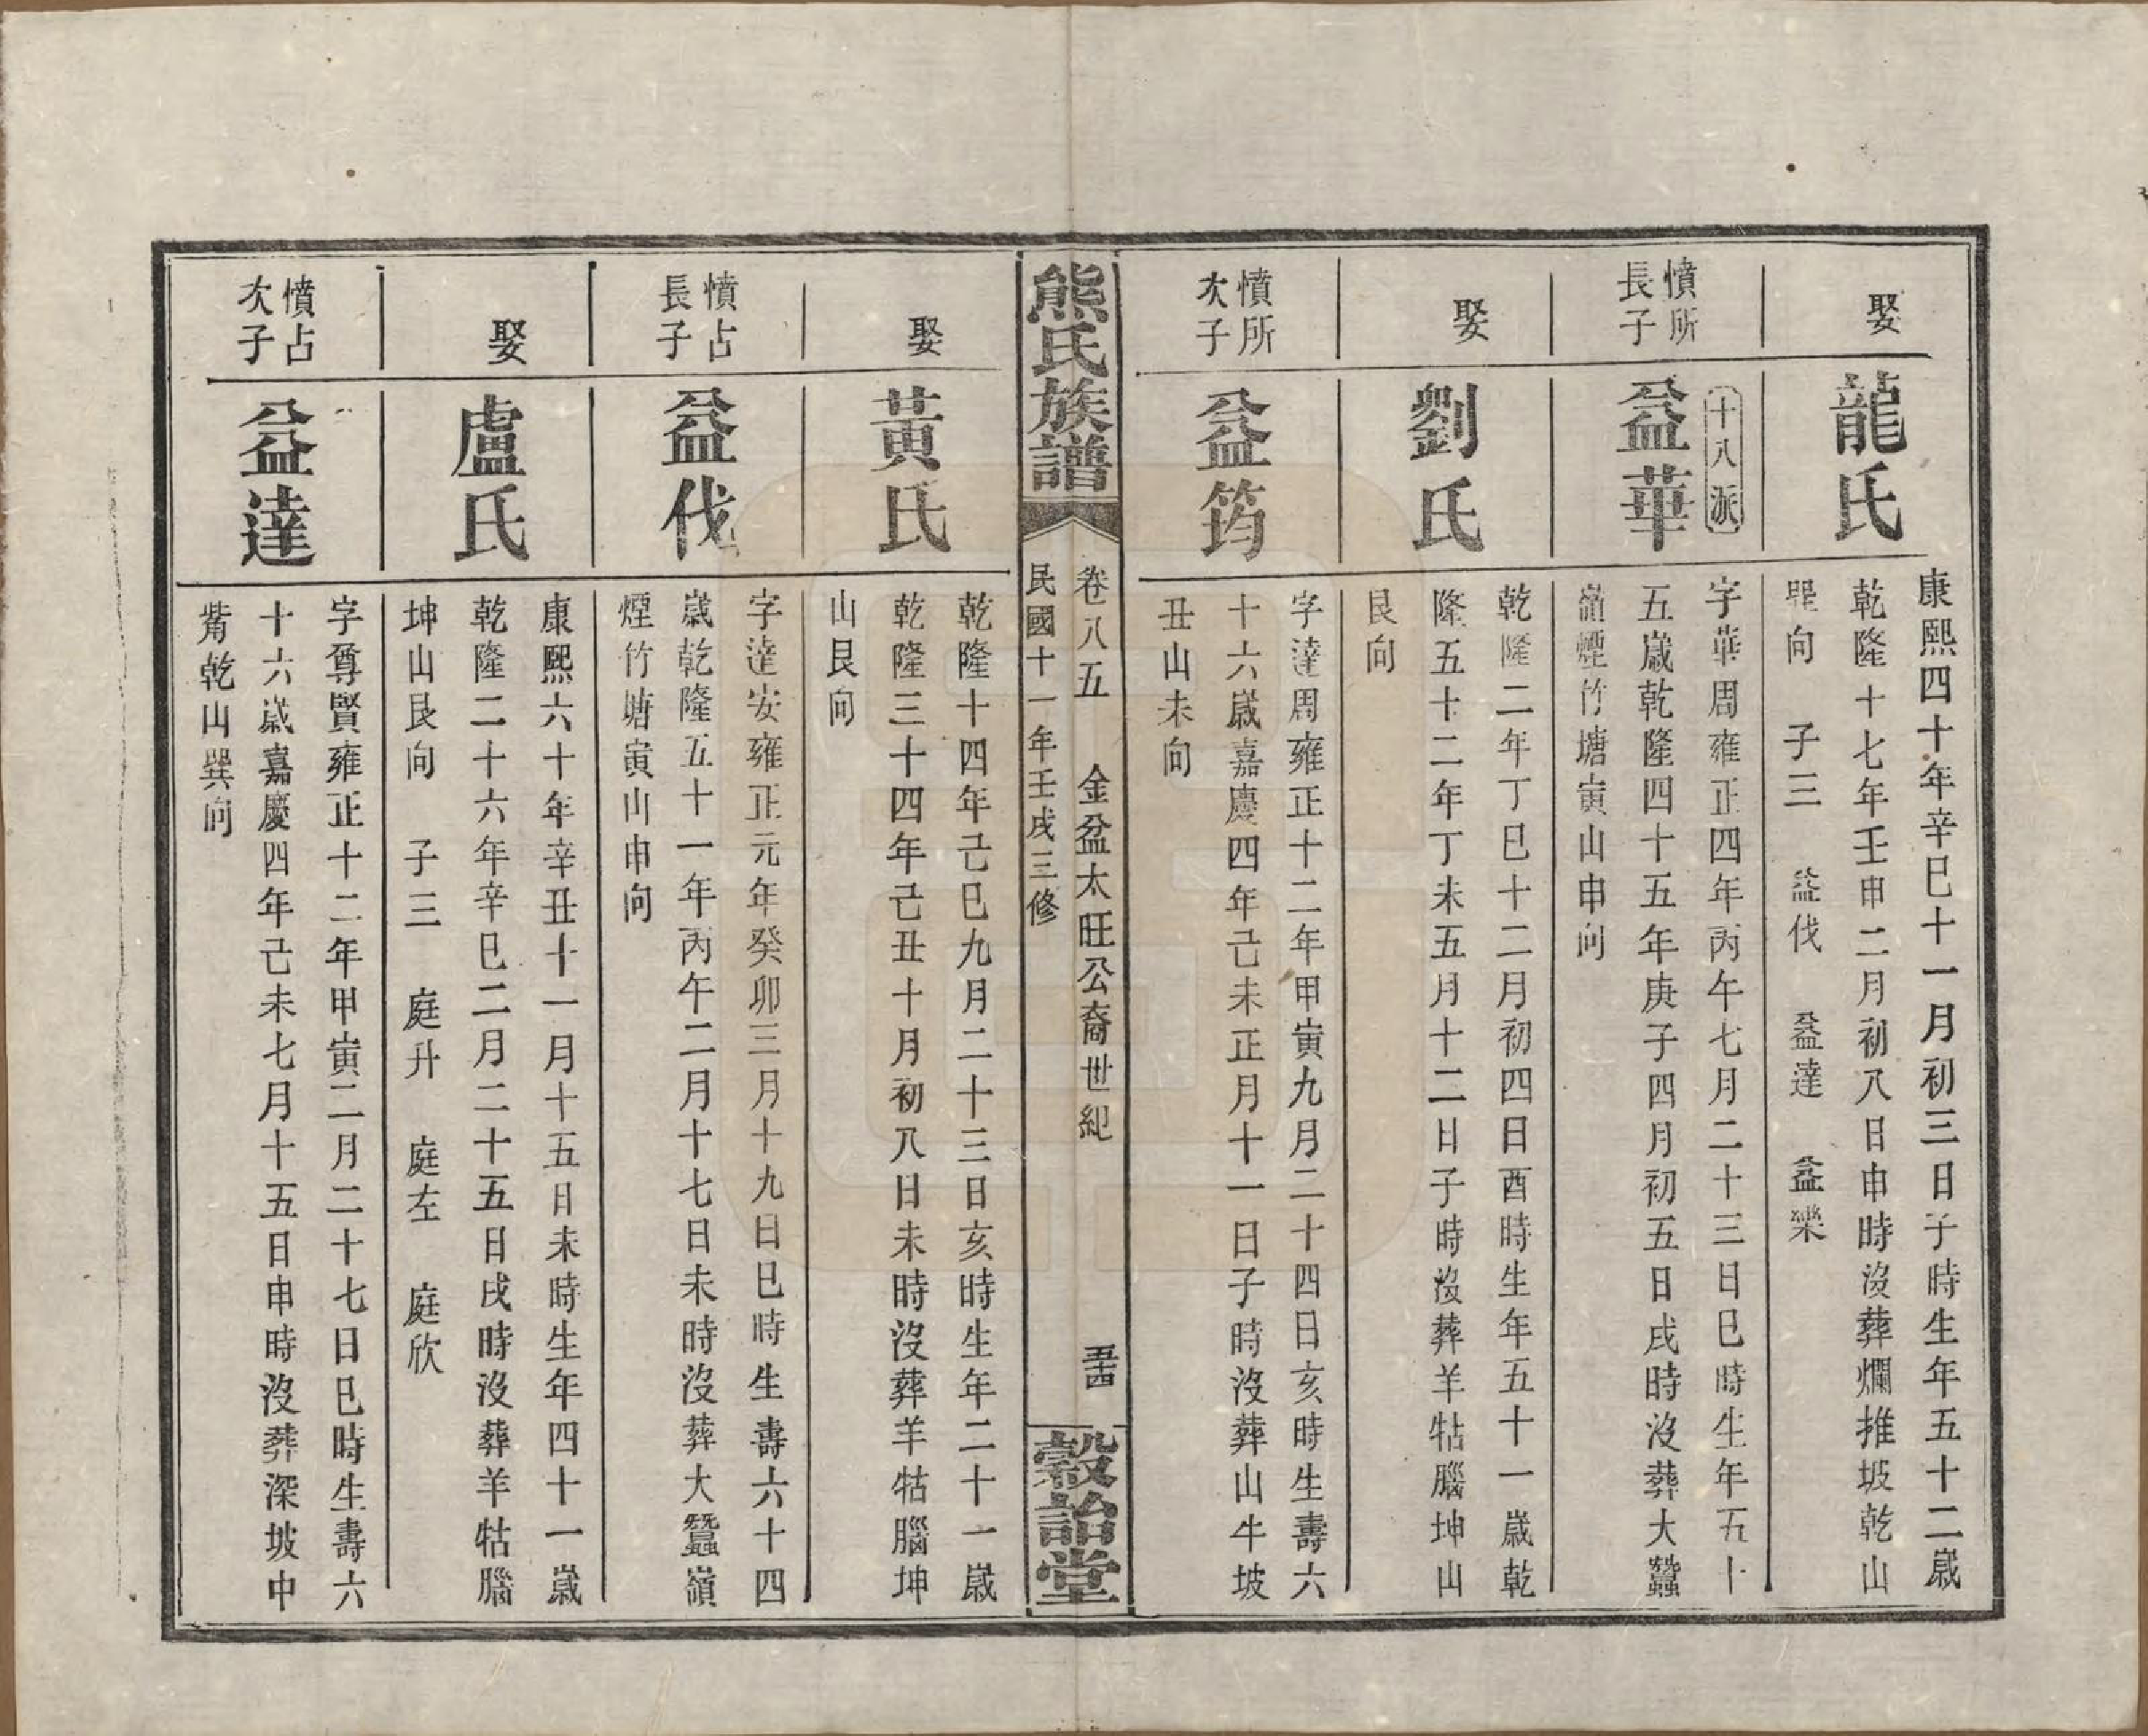 娶
龍氏
康熙四十年辛巳十一月初三日子時生年五十二歲
乾隆十七年壬申二月初八日申時沒葬爛推坡乾山
巽向 子三 益伐 益達 益樂
憤所
長子
十八派
益華
字華周雍正四年丙午七月二十三日巳時生年五十
五歲乾隆四十五年庚子四月初五日戌時沒葬大蠶
嶺煙竹塘寅山申向
娶
劉氏
乾隆二年丁巳十二月初四日酉時生年五十一歲乾
隆五十二年丁未五月十二日子時沒葬羊牯腦坤山
艮向
憤所
次子
益筠
字達周雍正十二年甲寅九月二十四日亥時生壽六
十六歲嘉慶四年己未正月十一日子時沒葬山牛坡
丑山未向
熊氏族譜
卷八五 金盆太旺公裔世紀 五十四
民國十一年壬戌三修
穀詒堂
娶
黃氏
乾隆十四年己巳九月二十三日亥時生年二十一歲
乾隆三十四年己丑十月初八日未時沒葬羊牯腦坤
山艮向
憤占
長子
益伐
字達安雍正元年癸卯三月十九日巳時生壽六十四
歲乾隆五十一年丙午二月十七日未時沒葬大蠶嶺
煙竹塘寅山申向
娶
盧氏
康熙六十年辛丑十一月十五日未時生年四十一歲
乾隆二十六年辛巳二月二十五日戌時沒葬羊牯腦
坤山艮向 子三 庭升 庭左 庭欣
憤占
次子
益達
字尊賢雍正十二年甲寅二月二十七日巳時生壽六
十六歲嘉慶四年己未七月十五日申時沒葬深坡中
觜乾山巽向